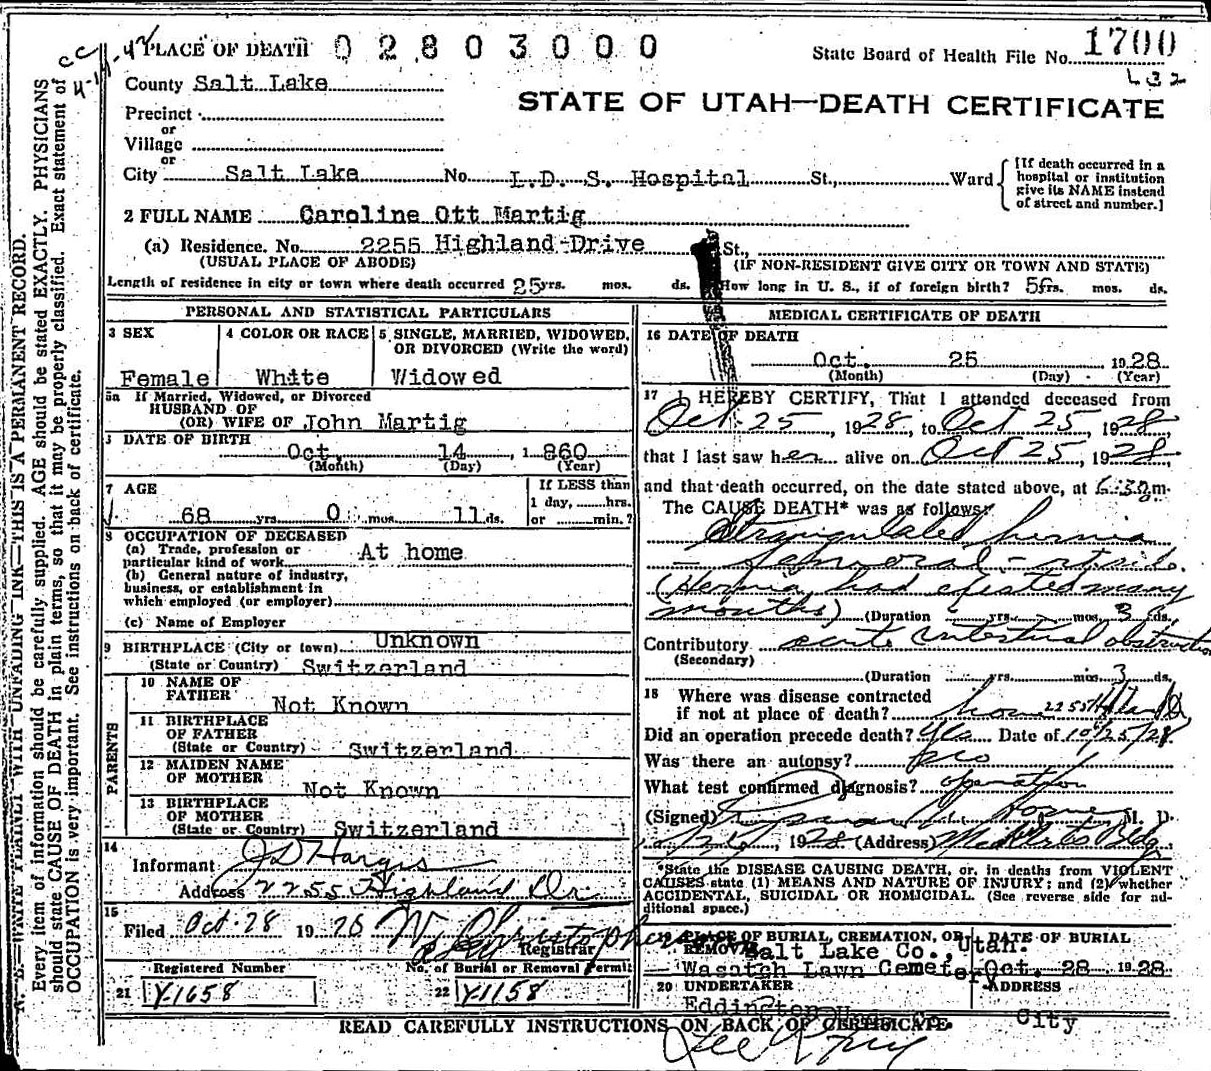 PLACE OF DEATH 0 2 8 0 3 0 0 0
State Board of Health File No. 1700
County Salt Lake
STATE OF UTAH—DEATH CERTIFICATE
Precinct
or
Village
or
City Salt Lake No. L.D. S. Hospital St., Ward
[If death occurred in a
hospital or institution
give its NAME instead
of street and number.]
2 FULL NAME Caroline Ott Martig
(a) Residence. No. 2255 Highland Drive St.,
(USUAL PLACE OF ABODE) (IF NON-RESIDENT GIVE CITY OR TOWN AND STATE)
Length of residence in city or town where death occurred 25 yrs. mos. ds. How long in U. S., if of foreign birth? yrs. mos. ds.
PERSONAL AND STATISTICAL PARTICULARS
3 SEX 4 COLOR OR RACE 5 SINGLE, MARRIED, WIDOWED,
OR DIVORCED (Write the word)
Female White Widowed
5a If Married, Widowed, or Divorced
HUSBAND OF
(OR) WIFE OF John Martig
DATE OF BIRTH
Oct. 14, 1860
(Month) (Day) (Year)
7 AGE If LESS than
1 day, hrs.
68 yrs. 0 mos. 11 ds. or min.?
8 OCCUPATION OF DECEASED
(a) Trade, profession or
particular kind of work At home
(b) General nature of industry,
business, or establishment in
which employed (or employer)
(c) Name of Employer
9 BIRTHPLACE (City or town) Unknown
(State or Country) Switzerland
PARENTS
10 NAME OF
FATHER Not Known
11 BIRTHPLACE
OF FATHER
(State or Country) Switzerland
12 MAIDEN NAME
OF MOTHER
Not Known
13 BIRTHPLACE
OF MOTHER
(State or Country) Switzerland
14
Informant J D Hargis
Address 2255 Highland Dr
15
Filed Oct-28 1928
Registrar
Registered Number No. of Burial or Removal Permit
21 Y-1658 22 Y-1158
MEDICAL CERTIFICATE OF DEATH
16 DATE OF DEATH
Oct. 25 1928
(Month) (Day) (Year)
17 I HEREBY CERTIFY, That I attended deceased from
Oct. 25, 1928, to Oct 25, 1928,
that I last saw her alive on Oct 25, 1928,
and that death occurred, on the date stated above, at m.
The CAUSE DEATH* was as follows:
Strangulated hernia
- femoral - rt side.
(Hernia had existed many
months) (Duration yrs. mos. 3 ds.
Contributory acute intestinal obstruction
(Secondary)
(Duration yrs. mos. 3 ds.
18 Where was disease contracted
if not at place of death? home 2255 Highland Dr
Did an operation precede death? Yes Date of 10/25/28
Was there an autopsy? no
What test confirmed diagnosis? operation
(Signed) M. D.
, 1928 (Address) Bldg.
*State the DISEASE CAUSING DEATH, or, in deaths from VIOLENT
CAUSES state (1) MEANS AND NATURE OF INJURY; and (2) whether
ACCIDENTAL, SUICIDAL OR HOMICIDAL. (See reverse side for ad-
ditional space.)
19 PLACE OF BURIAL, CREMATION, OR DATE OF BURIAL
REMOVAL Salt Lake Co., Utah.
Wasatch Lawn Cemetery Oct. 28 1928
20 UNDERTAKER ADDRESS
Eddington City
READ CAREFULLY INSTRUCTIONS ON BACK OF CERTIFICATE.
N. B.—WRITE PLAINLY WITH UNFADING INK—THIS IS A PERMANENT RECORD.
Every item of information should be carefully supplied. AGE should be stated EXACTLY. PHYSICIANS
should state CAUSE OF DEATH in plain terms, so that it may be properly classified. Exact statement of
OCCUPATION is very important. See instructions on back of certificate.